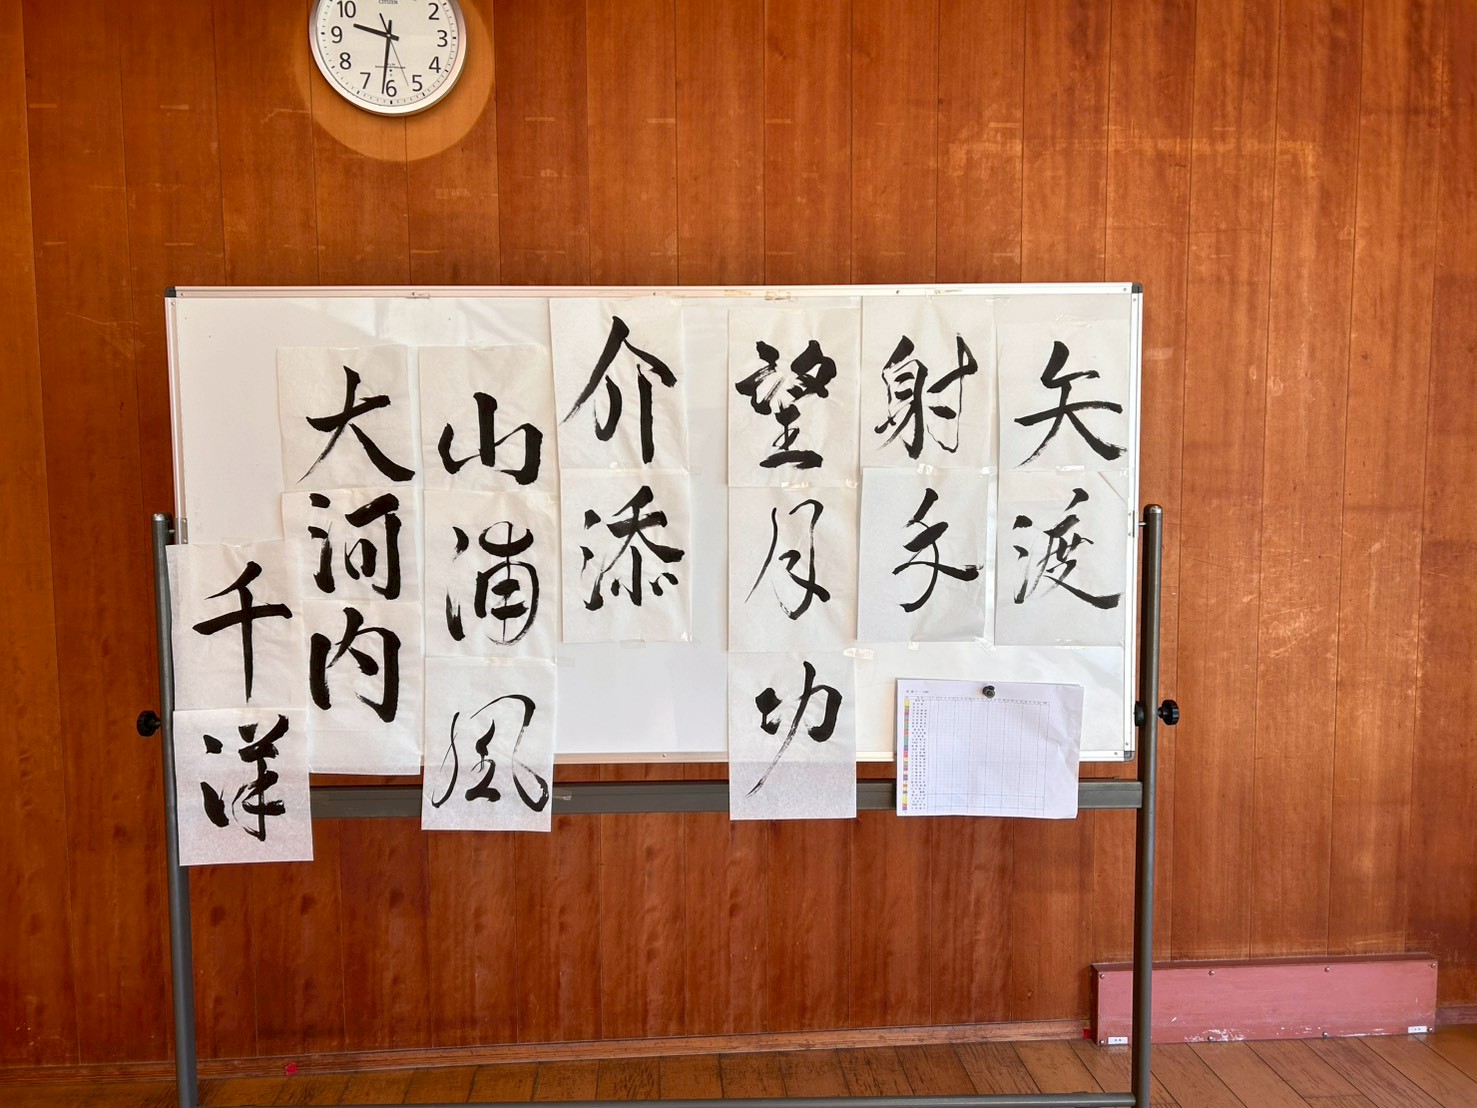 矢渡
射手
望月功
介添
山浦風
大河内
千洋
CITIZEN
10
2
9
3
8
4
7
6
5